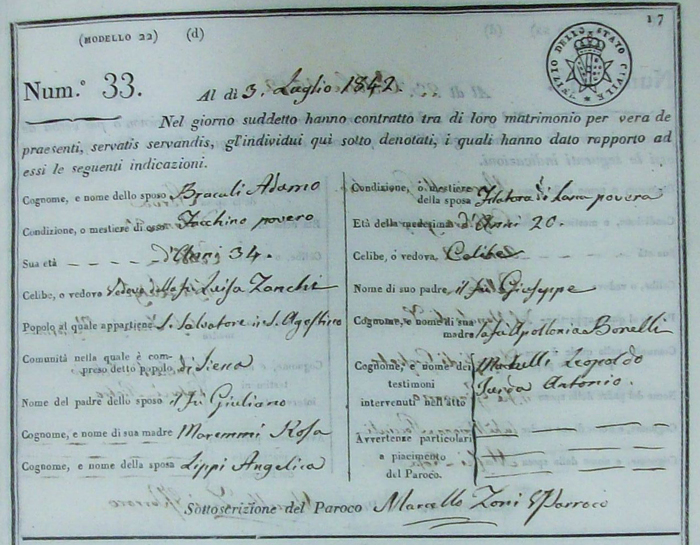 17
(MODELLO 22) (d)
UFIZIO DELLO STATO CIVILE
Num.° 33. Al dì 3. Luglio 1842.
Nel giorno suddetto hanno contratto tra di loro matrimonio per vera de
praesenti, servatis servandis, gl'individui qui sotto denotati, i quali hanno dato rapporto ad
essi le seguenti indicazioni.
Cognome, e nome dello sposo Braculi Adamo
Condizione, o mestiere di esso Facchino povero
Sua età d'Anni 34.
Celibe, o vedovo Vedovo della fu Luisa Zanchi
Popolo al quale appartiene S. Salvatore in S. Agostino
Comunità nella quale è com-
preso detto popolo di Siena
Nome del padre dello sposo il Fu Giuliano
Cognome, e nome di sua madre Maremmi Rosa
Cognome, e nome della sposa Lippi Angelica
Condizione, o mestiere
della sposa Filatora di Lana povera
Età della medesima d'Anni 20.
Celibe, o vedova Celibe
Nome di suo padre il fu Giuseppe
Cognome, e nome di sua
madre la fu Apollonia Bonelli
Cognome, e nome dei Leopoldo
testimoni Antonio.
intervenuti nell'atto
Avvertenze particolari
a piacimento
del Paroco.
Sottoscrizione del Paroco Marcello Zoni Parroco